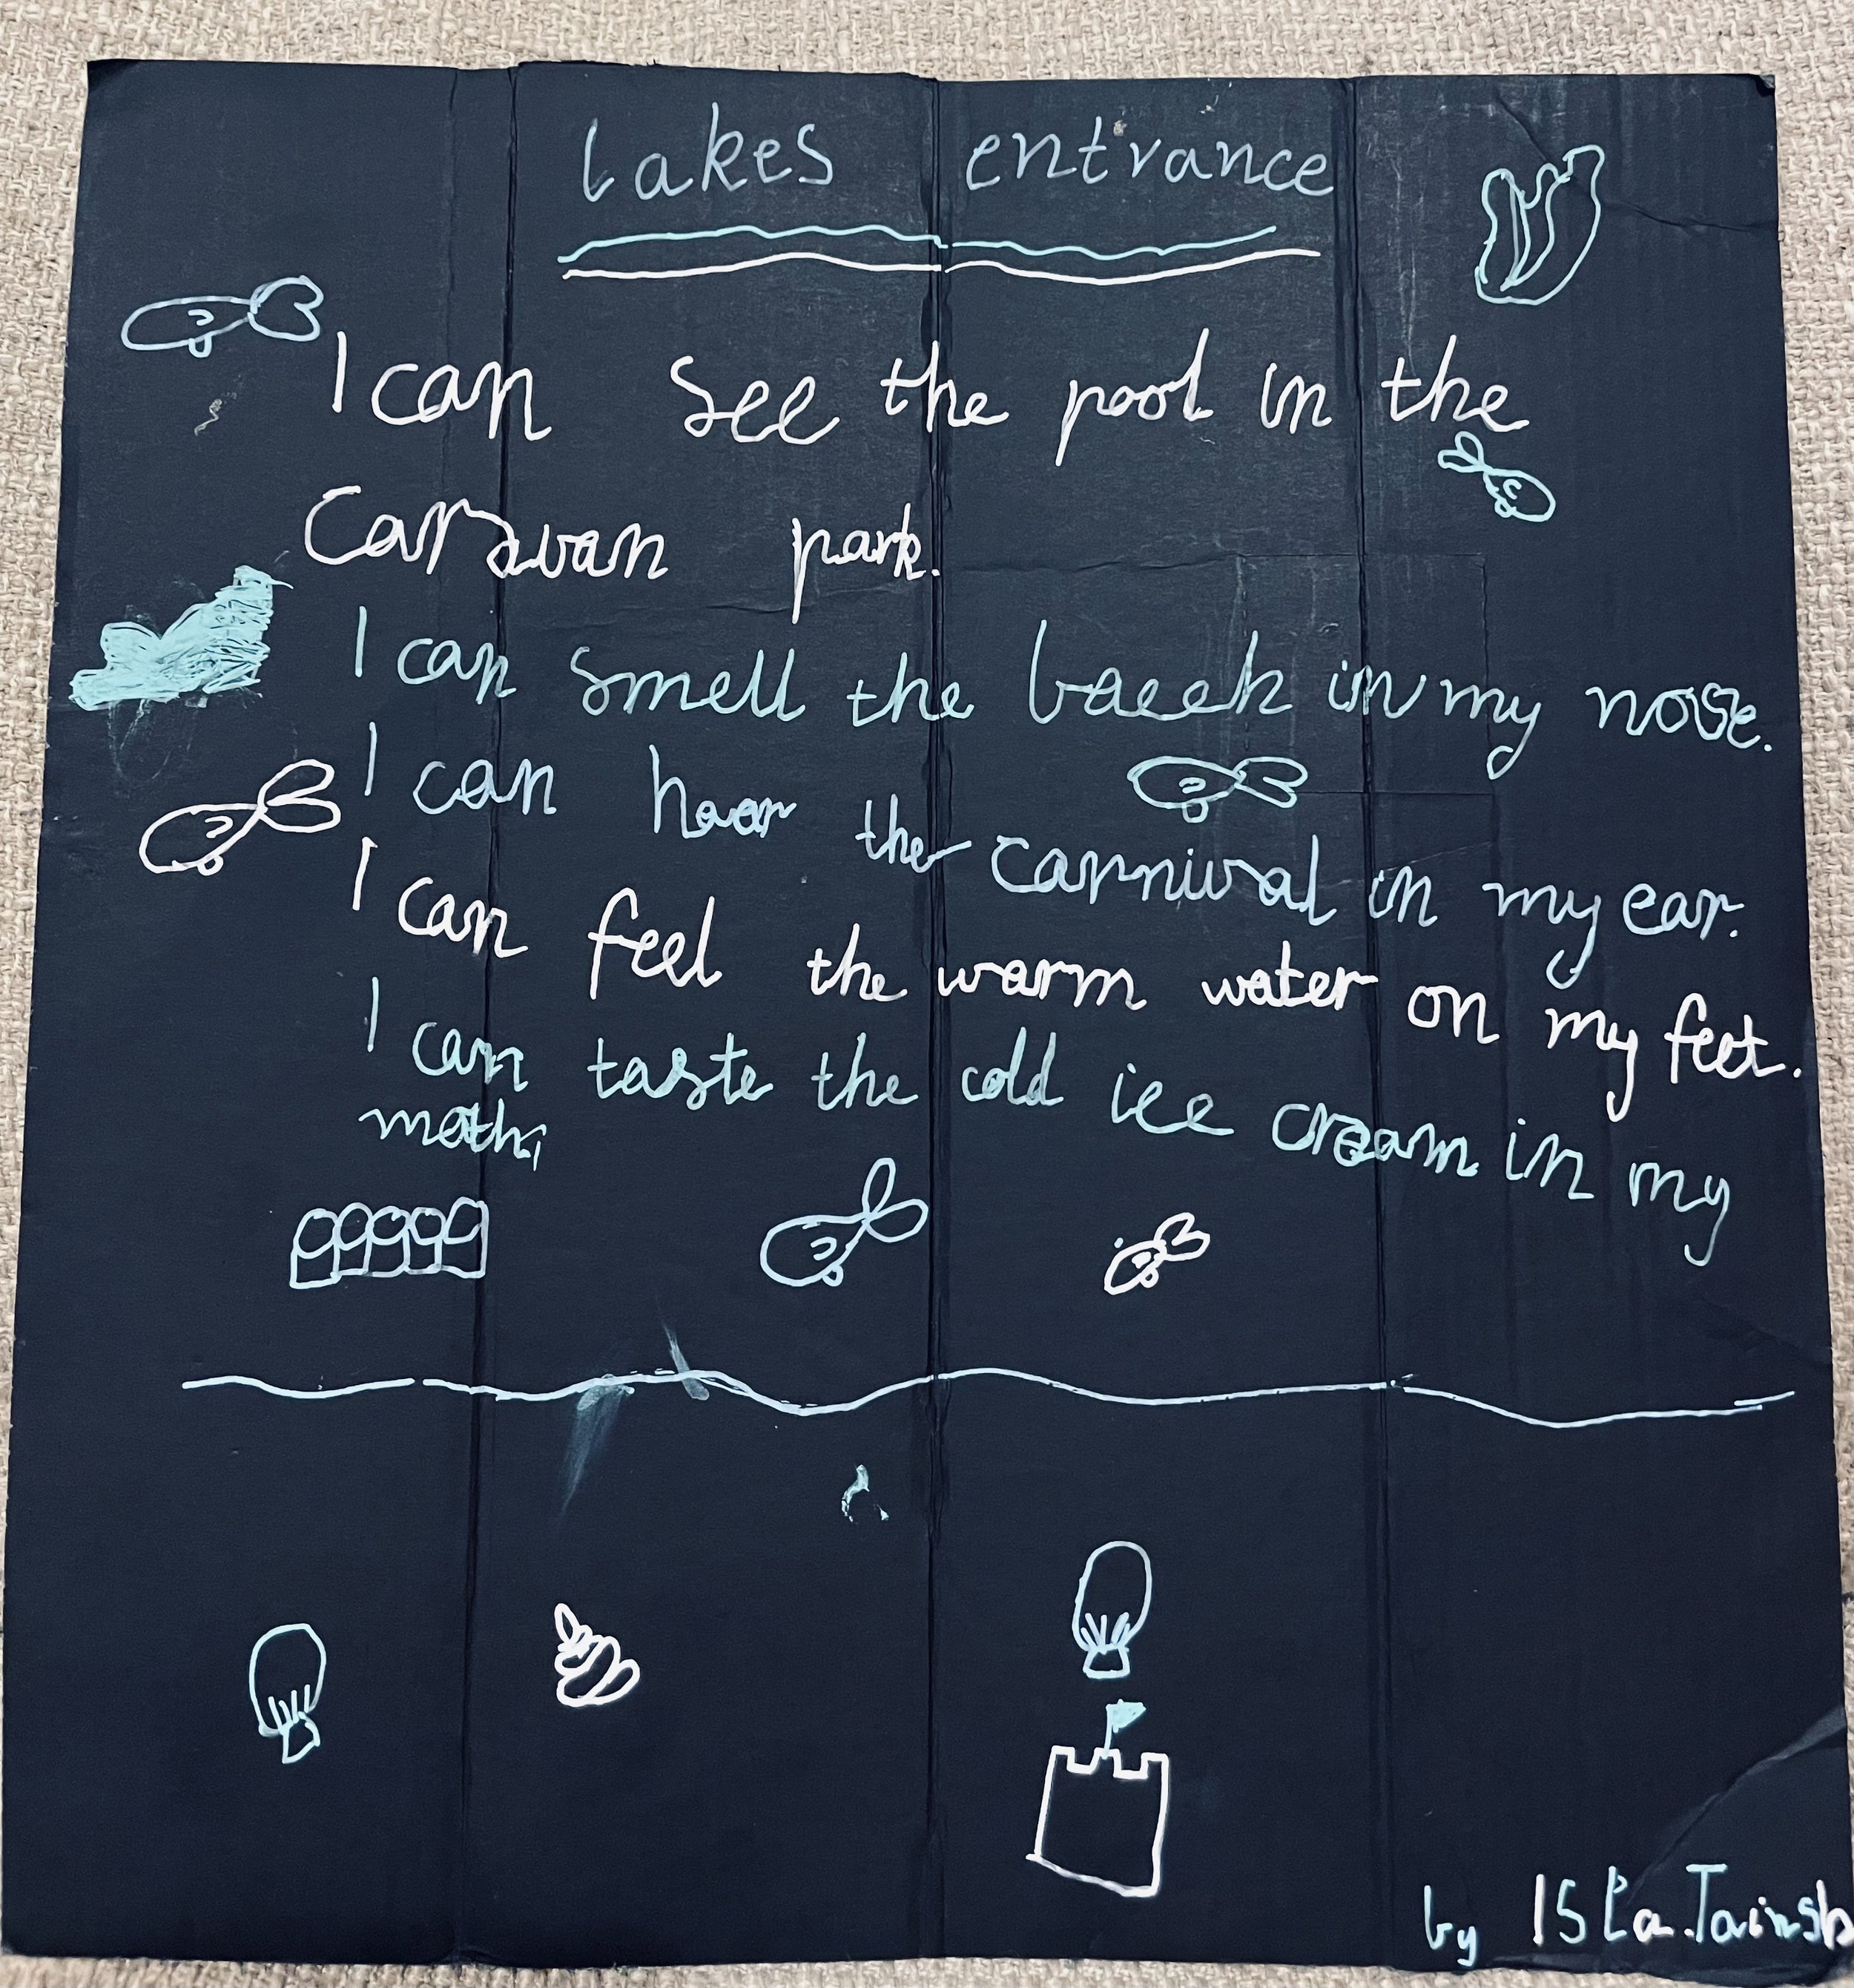 lakes entrance
I can see the pool in the
Caravan park.
I can smell the baeek in my nose.
I can hear the carnival in my ear.
I can feel the warm water on my feet.
I can taste the cold ice cream in my
moth,
by ISLa.Tainsh